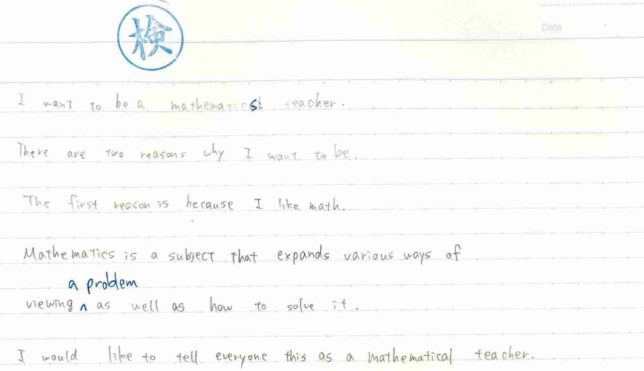 検
Date
I want to be a mathematics teacher.
There are two reasons why I want to be.
The first reason is because I like math.
Mathematics is a subject that expands various ways of
a problem
viewing ^ as well as how to solve it.
I would like to tell everyone this as a mathematical teacher.